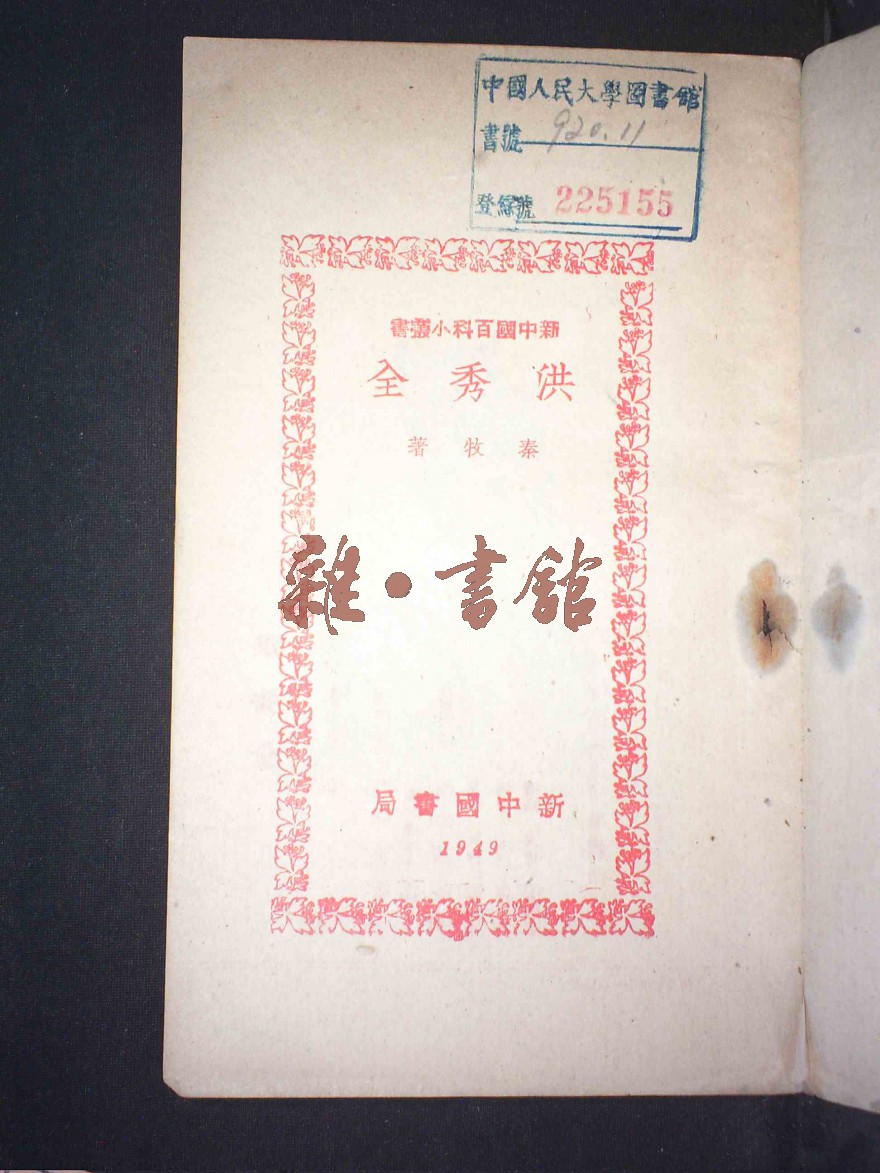 中國人民大學图書館
書號 920.11
登錄號 225155
新中國百科小叢書
洪秀全
秦牧著
雜·書館
新中國書局
1949